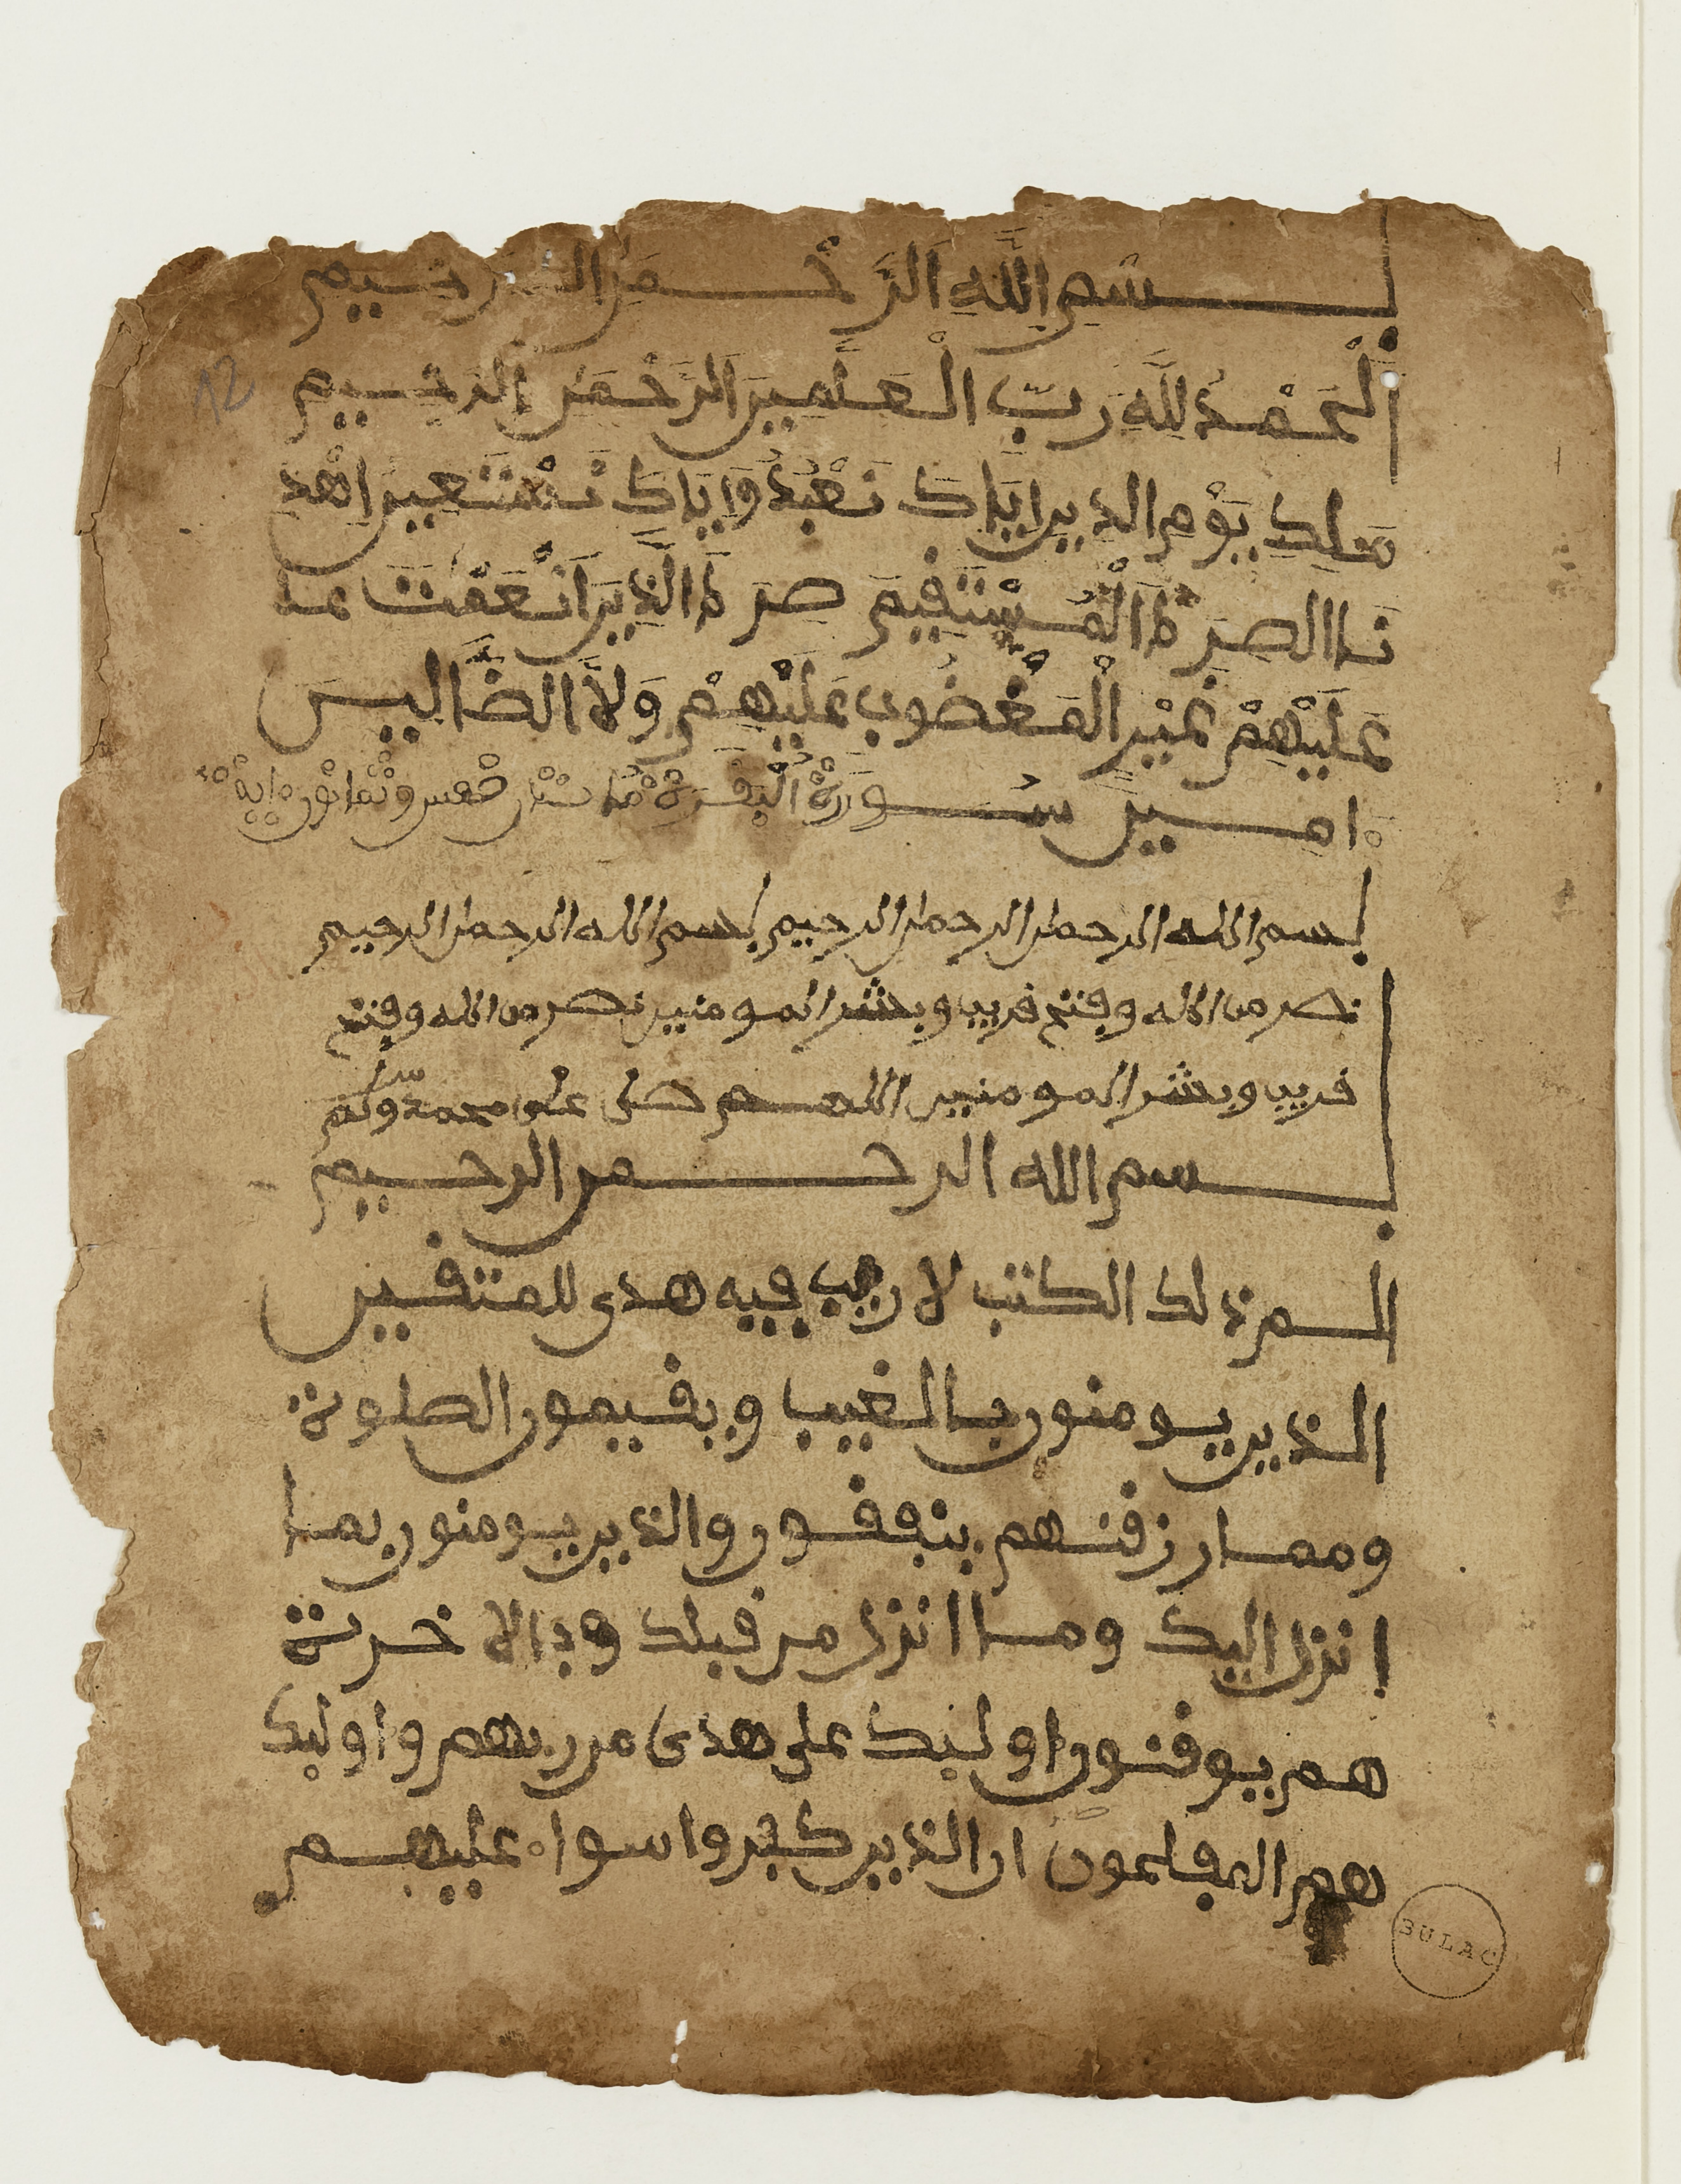 بسم اللَّهِ الرَّحْمَٰنِ الرحيم
اَلْحَمْدُ لِلَّهِ رَبِّ الْعَٰلَمِينَ الرَّحْمَٰنِ الرَّحِيمِ
مَلِكِ يَوْمِ الدِّينِ إِيَّاكَ نَعْبُدُ وَإِيَّاكَ نَسْتَعِينُ اِهْدِ
نَا الصِّرَٰطَ اَلْمُسْتَقِيمَ صِرَٰطَ الَّذِينَ أَنْعَمْتَ عـ
عَلَيْهِمْ غَيْرِ الْمَغْضُوبِ عَلَيْهِمْ وَلَا الضَّالِّين
ءامين سُورَةُ الْبَقَرَةِ مِائَتَانِ خَمْس وثَمَانُون ءاية
بسم الله الرحمن الرحيم بسم الله الرحمن الرحيم
نصر من الله وفتح قريب وبشر المومنين نصر من الله وفتح
قريب وبشر المومنين اللهم صلى على محمد وسلم
بسم الله الرحمن الرحيم
الم ذلك الكتب لا ريب فيه هدى للمتقين
الذين يومنون بالغيب ويقيمون الصلوة
ومما رزقنهم ينفقون والذين يومنون بما
انزل اليك وما انزل من قبلك وبالاخرة
هم يوقنون اوليك على هدى من ربهم واوليك
هم المفلحون ان الذين كفروا سواء عليهم
12
BULAC